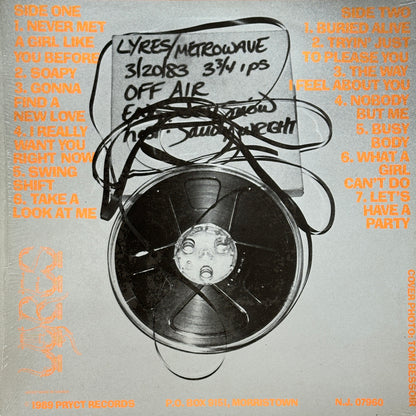 SIDE ONE
1. NEVER MET
A GIRL LIKE
YOU BEFORE
2. SOAPY
3. GONNA
FIND A
NEW LOVE
4. I REALLY
WANT YOU
RIGHT NOW
5. SWING
SHIFT
6. TAKE A
LOOK AT ME
LYRES/METROWAVE
3/20/83 3 3/4 ips
OFF AIR
SIDE TWO
1. BURIED ALIVE
2. TRYIN' JUST
TO PLEASE YOU
3. THE WAY
I FEEL ABOUT YOU
4. NOBODY
BUT ME
5. BUSY
BODY
6. WHAT A
GIRL
CAN'T DO
7. LET'S
HAVE A
PARTY
LYRES
COVER PHOTO:
1989 PRYCT RECORDS
MORRISTOWN
N.J. 07960